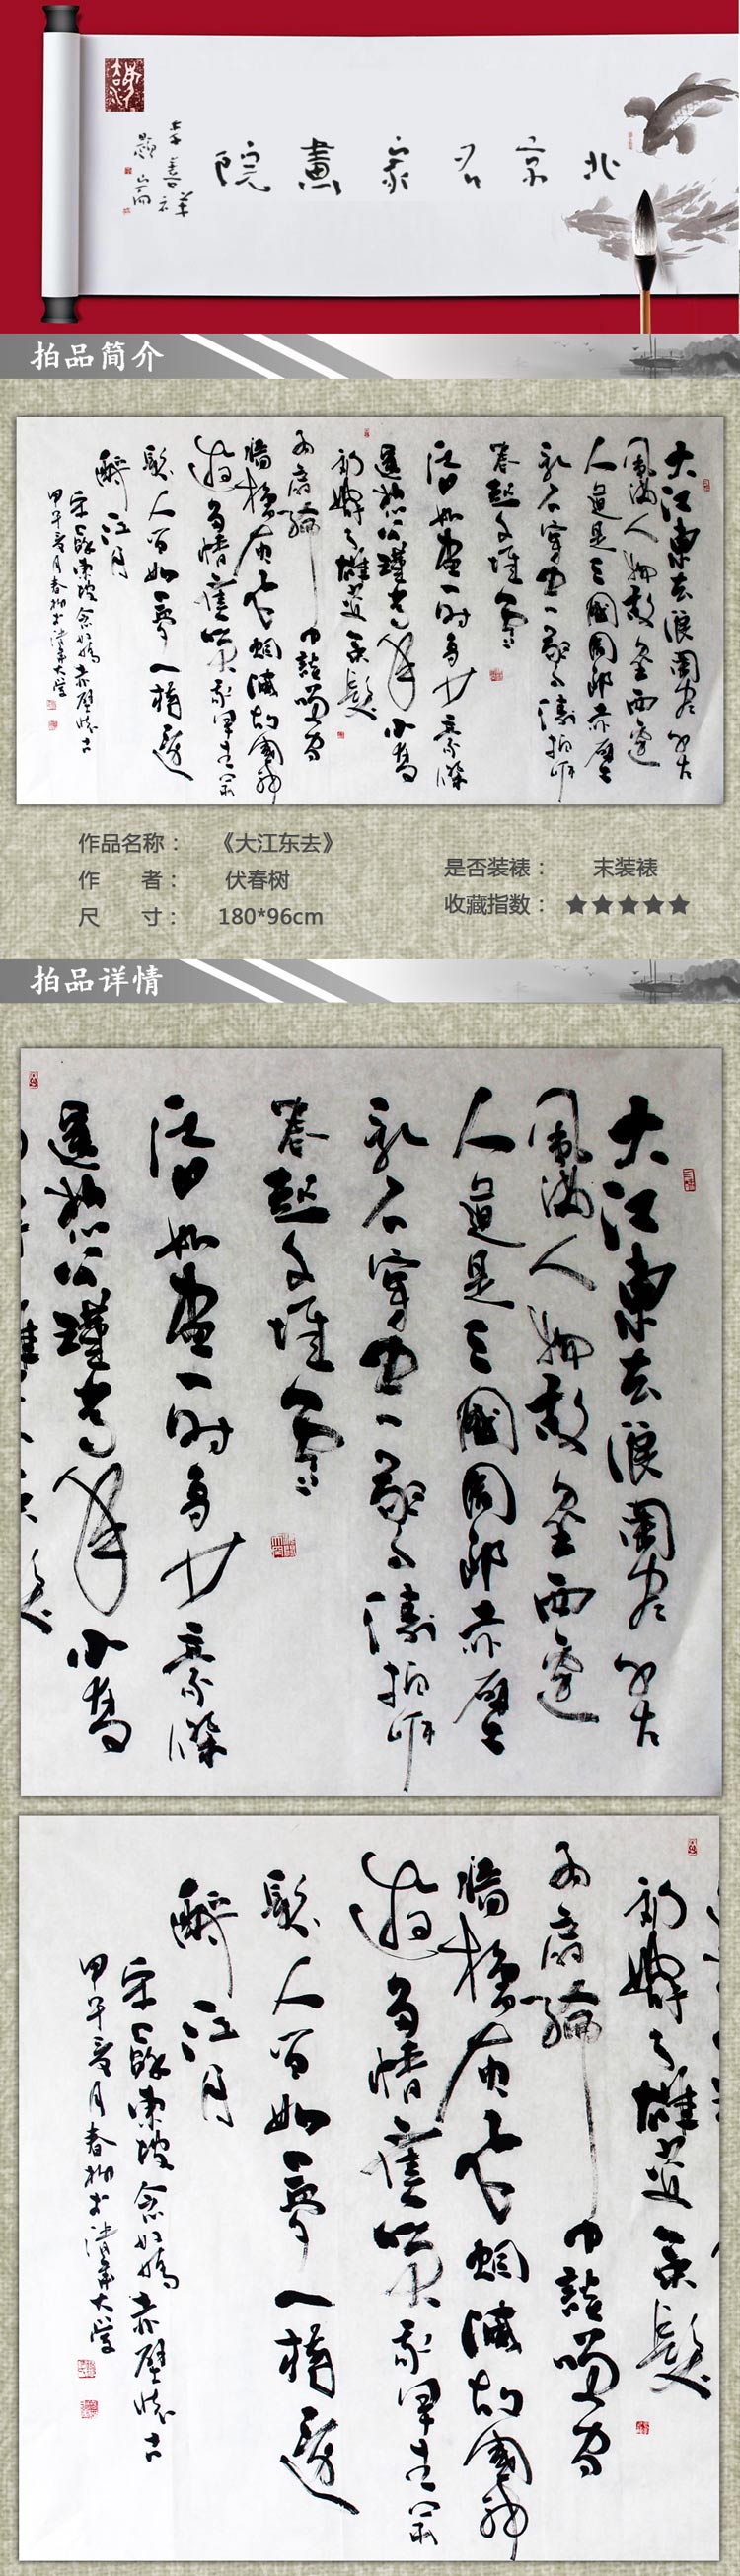 北京名家畫院
李善祥
題
拍品简介
大江東去浪淘盡千古
風流人物故壘西邊
人道是三國周郎赤壁
亂石穿空驚濤拍岸
卷起千堆雪
江山如畫一時多少豪傑
遥想公瑾當年小喬
初嫁了雄姿英發
羽扇綸巾談笑間
檣櫓灰飛烟滅故國神
遊多情應笑我早生華
髮人間如夢一樽還
酹江月
宋蘇東坡念奴嬌赤壁懷古
甲午夏月春樹於清華大學
作品名称： 《大江东去》
作 者： 伏春树
尺 寸： 180*96cm
是否装裱： 末装裱
收藏指数： ★★★★★
拍品详情
大江東去浪淘盡千古
風流人物故壘西邊
人道是三國周郎赤壁
亂石穿空驚濤拍岸
卷起千堆雪
江山如畫一時多少豪傑
遥想公瑾當年小喬
初嫁了雄姿英發
羽扇綸巾談笑間
檣櫓灰飛烟滅故國神
遊多情應笑我早生華
髮人間如夢一樽還
酹江月
宋蘇東坡念奴嬌赤壁懷古
甲午夏月春樹於清華大學